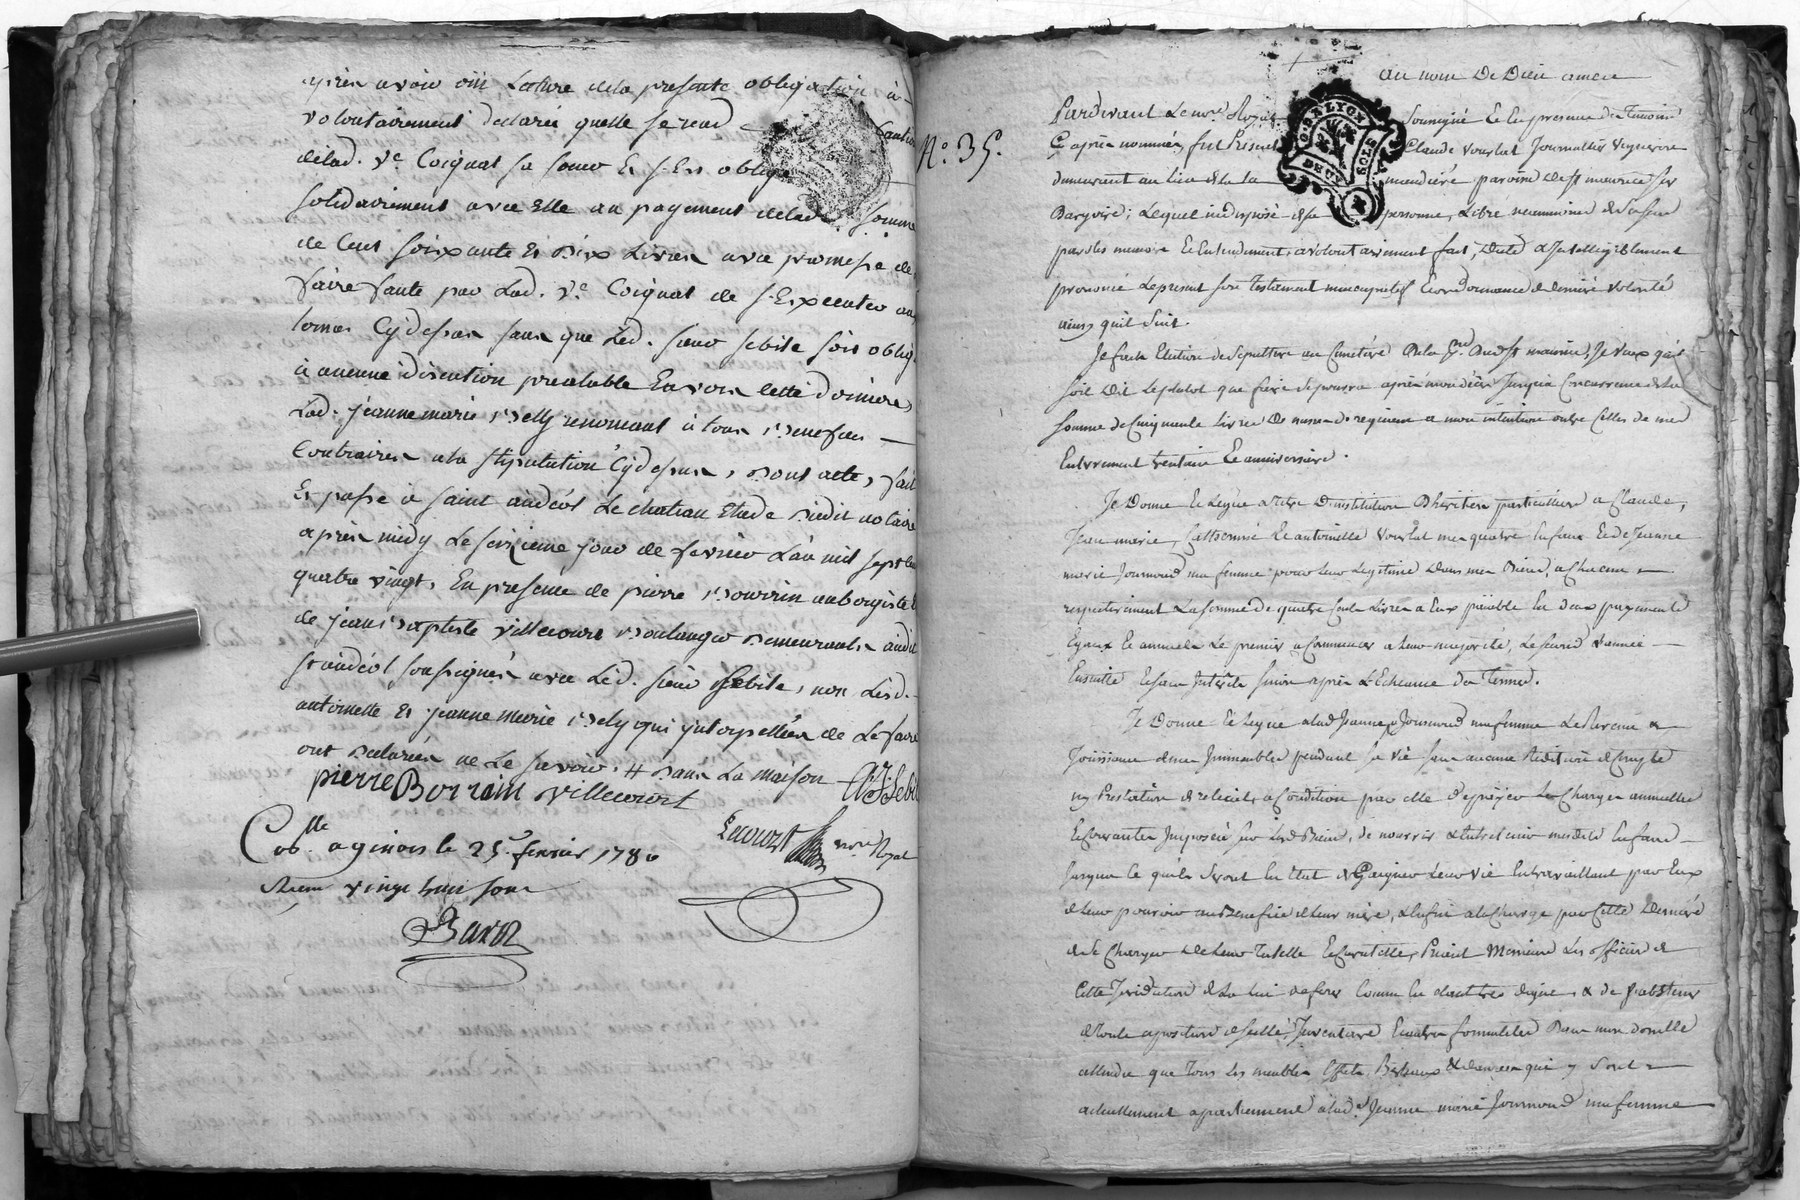 après avoir oüi Lecture de la presente obligation à
volontairement declarée quelle se rend caution
de lad. ve. Coignat sa soeur Et s'En oblige
solidairement avec Elle au payement de lad. somme
de Cent soixante Et Dix Livres avec promesse de
faire faute par Lad. ve. Coignat de s'Executer aux
termes Cy dessus sans que Led. sieur sebile soit oblig
à aucune discution prealable Envers cette derniere
Lad. jeanne marie renoncant à tous Benefices
Contraires a la stipulation Cy dessus, Dont acte, fait
Et passé à saint andéol Le chateau Etude dudit notaire
après midy Le seizieme jour de fevrier L'an mil sept Cent
quatre vingt, En presence de pierre Bourrin aubergiste Et
de jean Baptiste villecourt Boulanger Demeurants audit
st andéol soussignés avec Led. sieur sebile, non Lesd.
antoinette Et jeanne marie qui interpellées de Le faire
ont Declarées ne Le savoir. # Dans La maison
pierre Borrain villecourt
Lecourt nore. Royal
Coblle. a givors le 25. fevrier 1780
Recu vingt huit sous
N°. 35.
au nom De Dieu amen
G.S. LYON
DEUX SOLS
Pardevant Le nore. Royal soussigné Et En presence des Temoins
Cy après nommés, fut Present Claude vourlat Journallier vigneron
demeurant au lieu de la mendiére paroisse de St maurice sur
Dargoire; Lequel indisposé de sa personne, Libre neammoins de ses sens
paroles memoire Et Entendement, a volontairement fait, Dicté & Intelligiblement
prononcé Le present son testament nuncupatif Et ordonnance de derniere volonté
ainsy qu'il suit.
Je fais Election de sepulture au Cimetiére de la ps. dud. St maurice, Je veux qu'il
soit Dit Leplutot que faire se pourra après mon décès Jusqu'a Concurrence de La
somme de Cinquante Livres De messes de requiem a mon intention outre Celles de mes
Enterrement trentaine Et anniversaire.
Je Donne Et Legue a titre D'institution D'héritiers particuliers a Claude,
Jean marie, Catherine Et antoinette vourlat mes quatre Enfans Et de Jeanne
marie Journoud ma femme pour Leur Legitime Dans mes Biens, a Chacun
respectivement La somme de quatre Cents Livres a Eux païable En deux payements
Egaux Et annuels Le premier a Commencer a Leur majorité, Le second L'année
Ensuitte Et sans Interêts sinon après L'Echeance des Termes.
Je Donne Et Legue a lad Jeanne Journoud ma femme Le Revenu &
Joüissance de mes Immeubles pendant sa vie sans aucune Redition de Compte
ny Prestation de reliquat, a Condition par elle d'epayer Les Charges annuelles
Et Courantes Imposées sur lesd Biens, de nourrir & Entretenir mesdits Enfans
Jusques a Ce qu'ils seront En Etat de Gaigner Leur vie En travaillant par Eux
de Leur pouvoir au Benefice de leur mère, & Enfin a la Charge par Cette Derniére
de se Charger De Leur Tutelle Et Curatelle, Priant Messieurs Les officiers de
Cette Jurisdiction de La Lui deferer Comme En étant tres digne, & de s'abstenir
de toute aposition de scellé, Inventaire Et autres formalités Dans mon domicille
attendu que tous les meubles Effets, Bestiaux & denrées qui y sont
actuellement apartiennent a lad. Jeanne marie Journoud ma femme